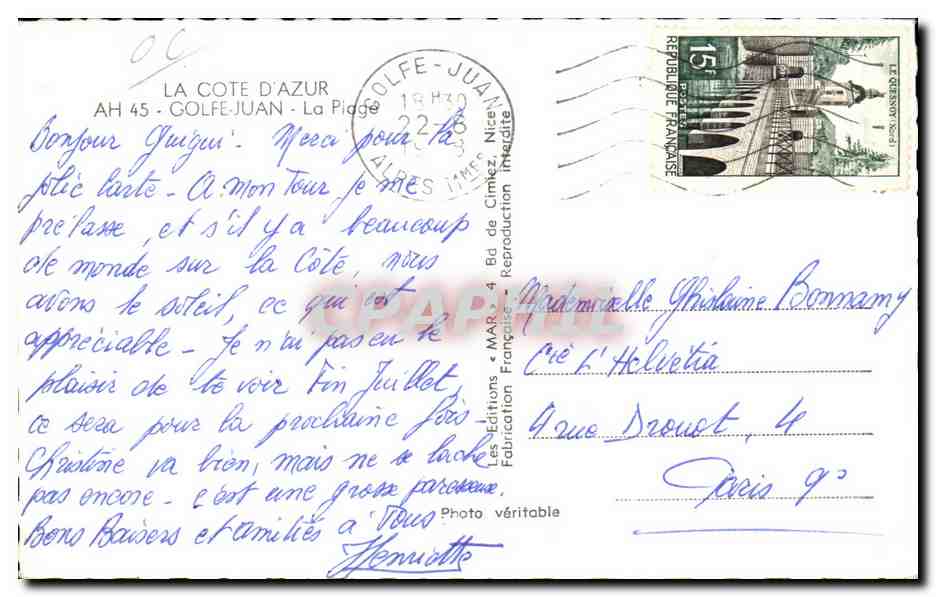 OC
LA COTE D'AZUR
AH 45 - GOLFE-JUAN - La Plage
Bonjour Guigui. Merci pour ta
jolie carte - A mon tour je me
prélasse, et s'il y a beaucoup
de monde sur la Côte, nous
avons le soleil, ce qui est
appréciable - Je n'ai pas eu le
plaisir de te voir Fin Juillet,
ce sera pour la prochaine fois -
Christine va bien, mais ne se lache
pas encore - c'est une grosse paresseuse.
Bons Baisers et amitiés à Tous
Henriette
GOLFE-JUAN
18H30
22-8
ALPES MMES
Les Editions « MAR », 4 Bd de Cimiez, Nice
Fabrication Française - Reproduction interdite
Photo véritable
CPAPHIL
15F
REPUBLIQUE FRANÇAISE
POSTES
LE QUESNOY (Nord)
Mademoiselle Ghislaine Bonnamy
Cie L'Helvétia
rue Drouot, 4
Paris 9°